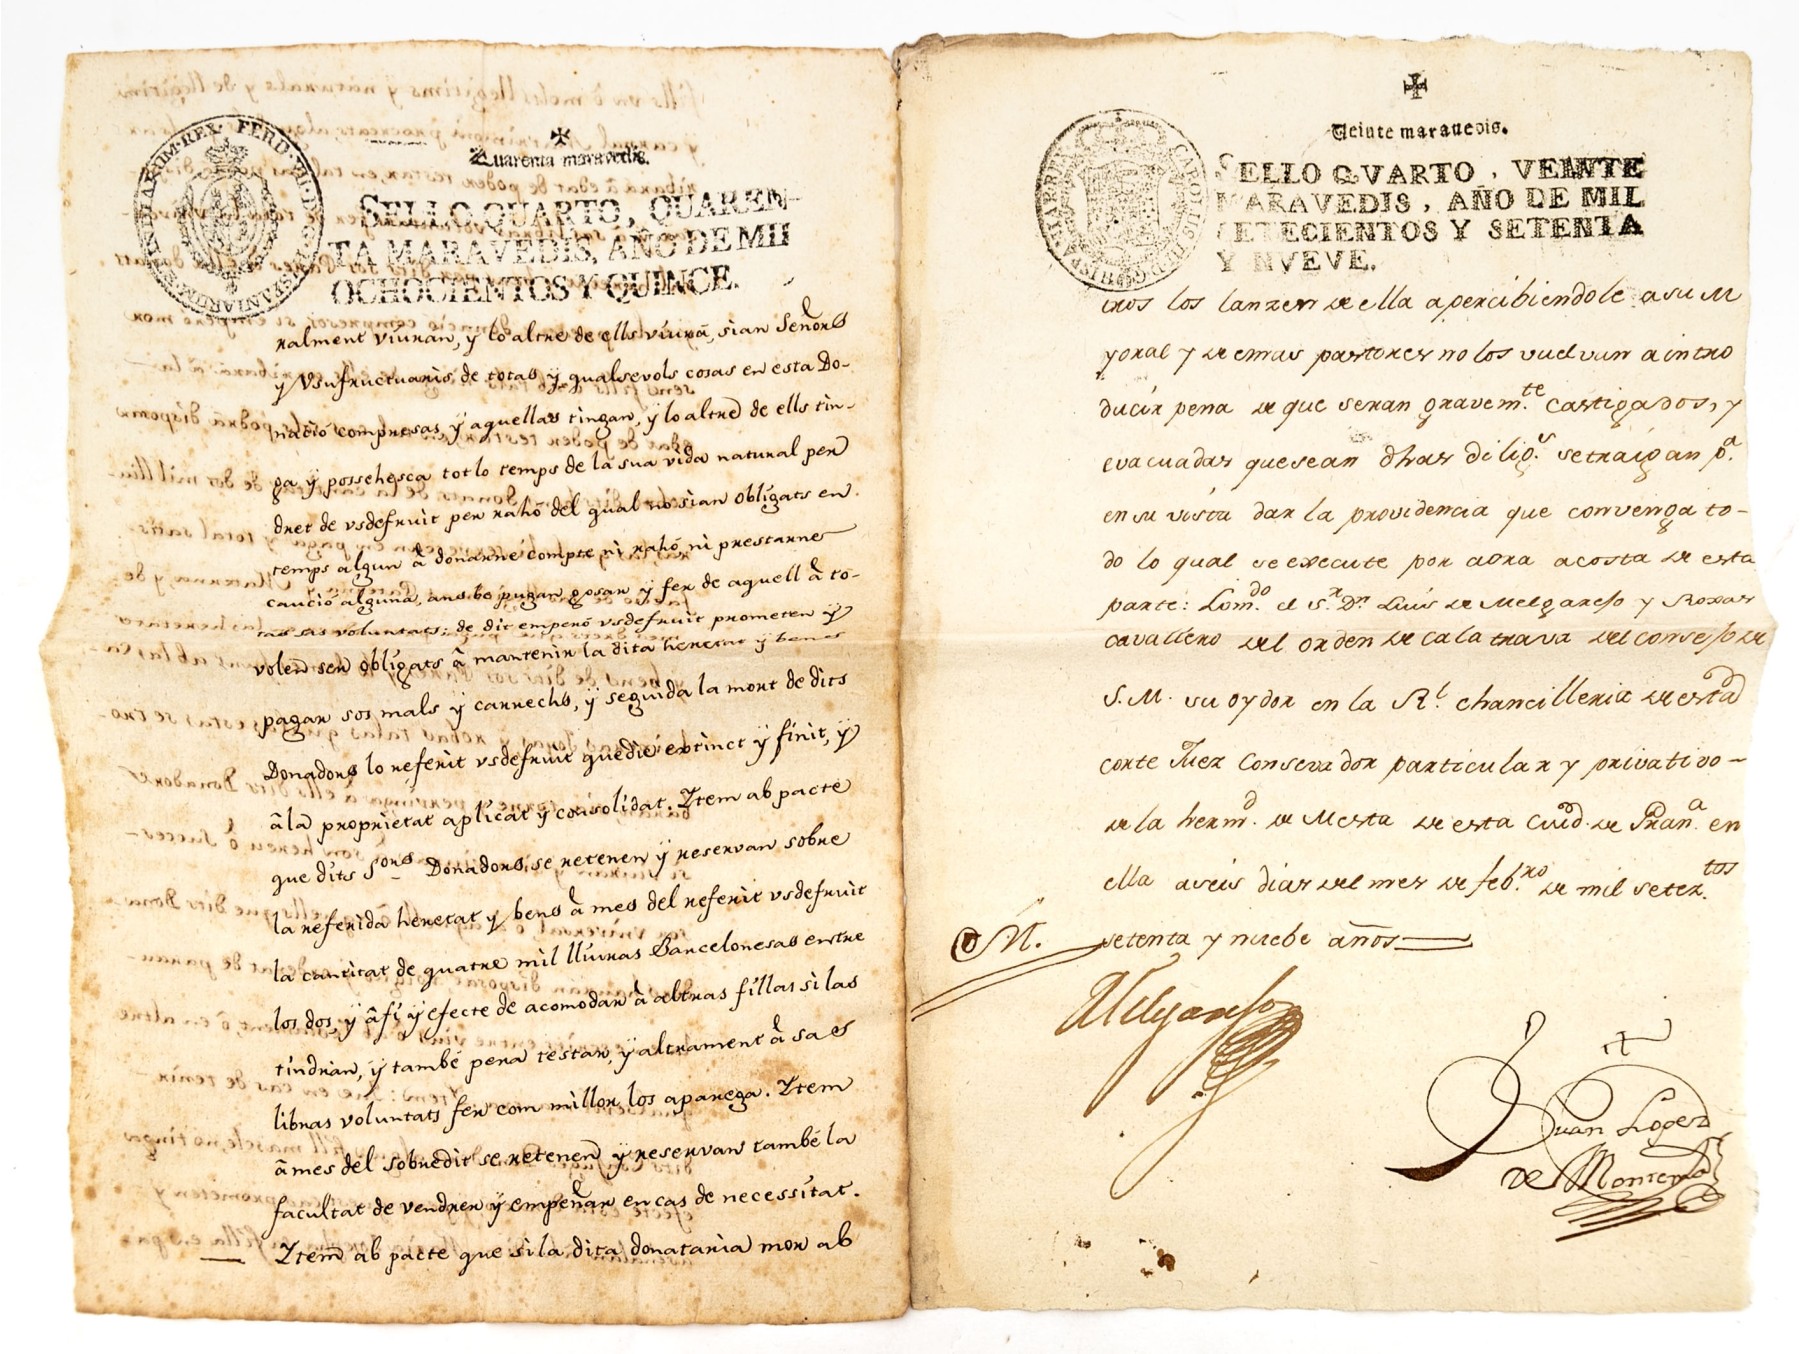 Quarenta maravedis.
SELLO QUARTO, QUAREN-
TA MARAVEDIS, AÑO DE MIL
OCHOCIENTOS Y QUINCE.
FERD. VII. D. G. HISPANIARUM REX
ralment viuran, y lo altre de ells viurá, sian Señors
y Vsufructuaris de totas ÿ qualsevols cosas en esta Do-
nació compresas, ÿ aquellas tingan, ÿ lo altre de ells tin-
ga ÿ possehesca tot lo temps de la sua vida natural per
dret de vsdefruit per rahó del qual no sian obligats en
temps algun â donarne compte ni rahó, ni prestarne
caució alguna, ans be pugan gosar ÿ fer de aquell â to-
tas sas voluntats; de dit emperó vsdefruit prometen ÿ
volen ser obligats â mantenir la dita heretat ÿ benes
pagar sos mals ÿ carrechs, ÿ seguida la mort de dits
Donadors lo referit vsdefruit quedie extinct ÿ finit, ÿ
â la proprietat aplicat ÿ consolidat. Item ab pacte
que dits Sors Donadors se retenen ÿ reservan sobre
la referida heretat y bens â mes del referit vsdefruit
la cantitat de quatre mil lliuras Barcelonesas entre
los dos, y â fi ÿ efecte de acomodar â altras fillas si las
tindrán, ÿ també pera testar, ÿ altrament â sas
libras voluntats fer com millor los aparega. Item
â mes del sobredit se retenen ÿ reservan també la
facultat de vendrer ÿ empeñar en cas de necessitat.
Item ab pacte que si la dita donataria mor ab
Veinte maravedis.
SELLO QVARTO, VEINTE
MARAVEDIS, AÑO DE MIL
SETECIENTOS Y SETENTA
Y NVEVE.
CAROLUS III D. G. HISPANIAR REX
tros los lanzen de ella apercibiendole a su M
yoral y demas pastores no los vuelvan a intro
ducir pena de que seran gravemte castigados, y
evacuadas que sean dhas dilig.s se traigan pa.
en su vista dar la providencia que convenga to-
do lo qual se execute por aora a costa de esta
parte: Lomdo el Sr. Dn Luis de Melgarejo y Roxas
cavallero del orden de calatrava del consejo de
S. M. su oydor en la Rl. chancilleria de esta
corte Juez Conservador particular y privativo-
de la hermd. de Mesta de esta Ciud. de Grana. en
ella a seis dias del mes de febro de mil setectos
setenta y nuebe años
Melgarejo
Juan Lopez
de Monte